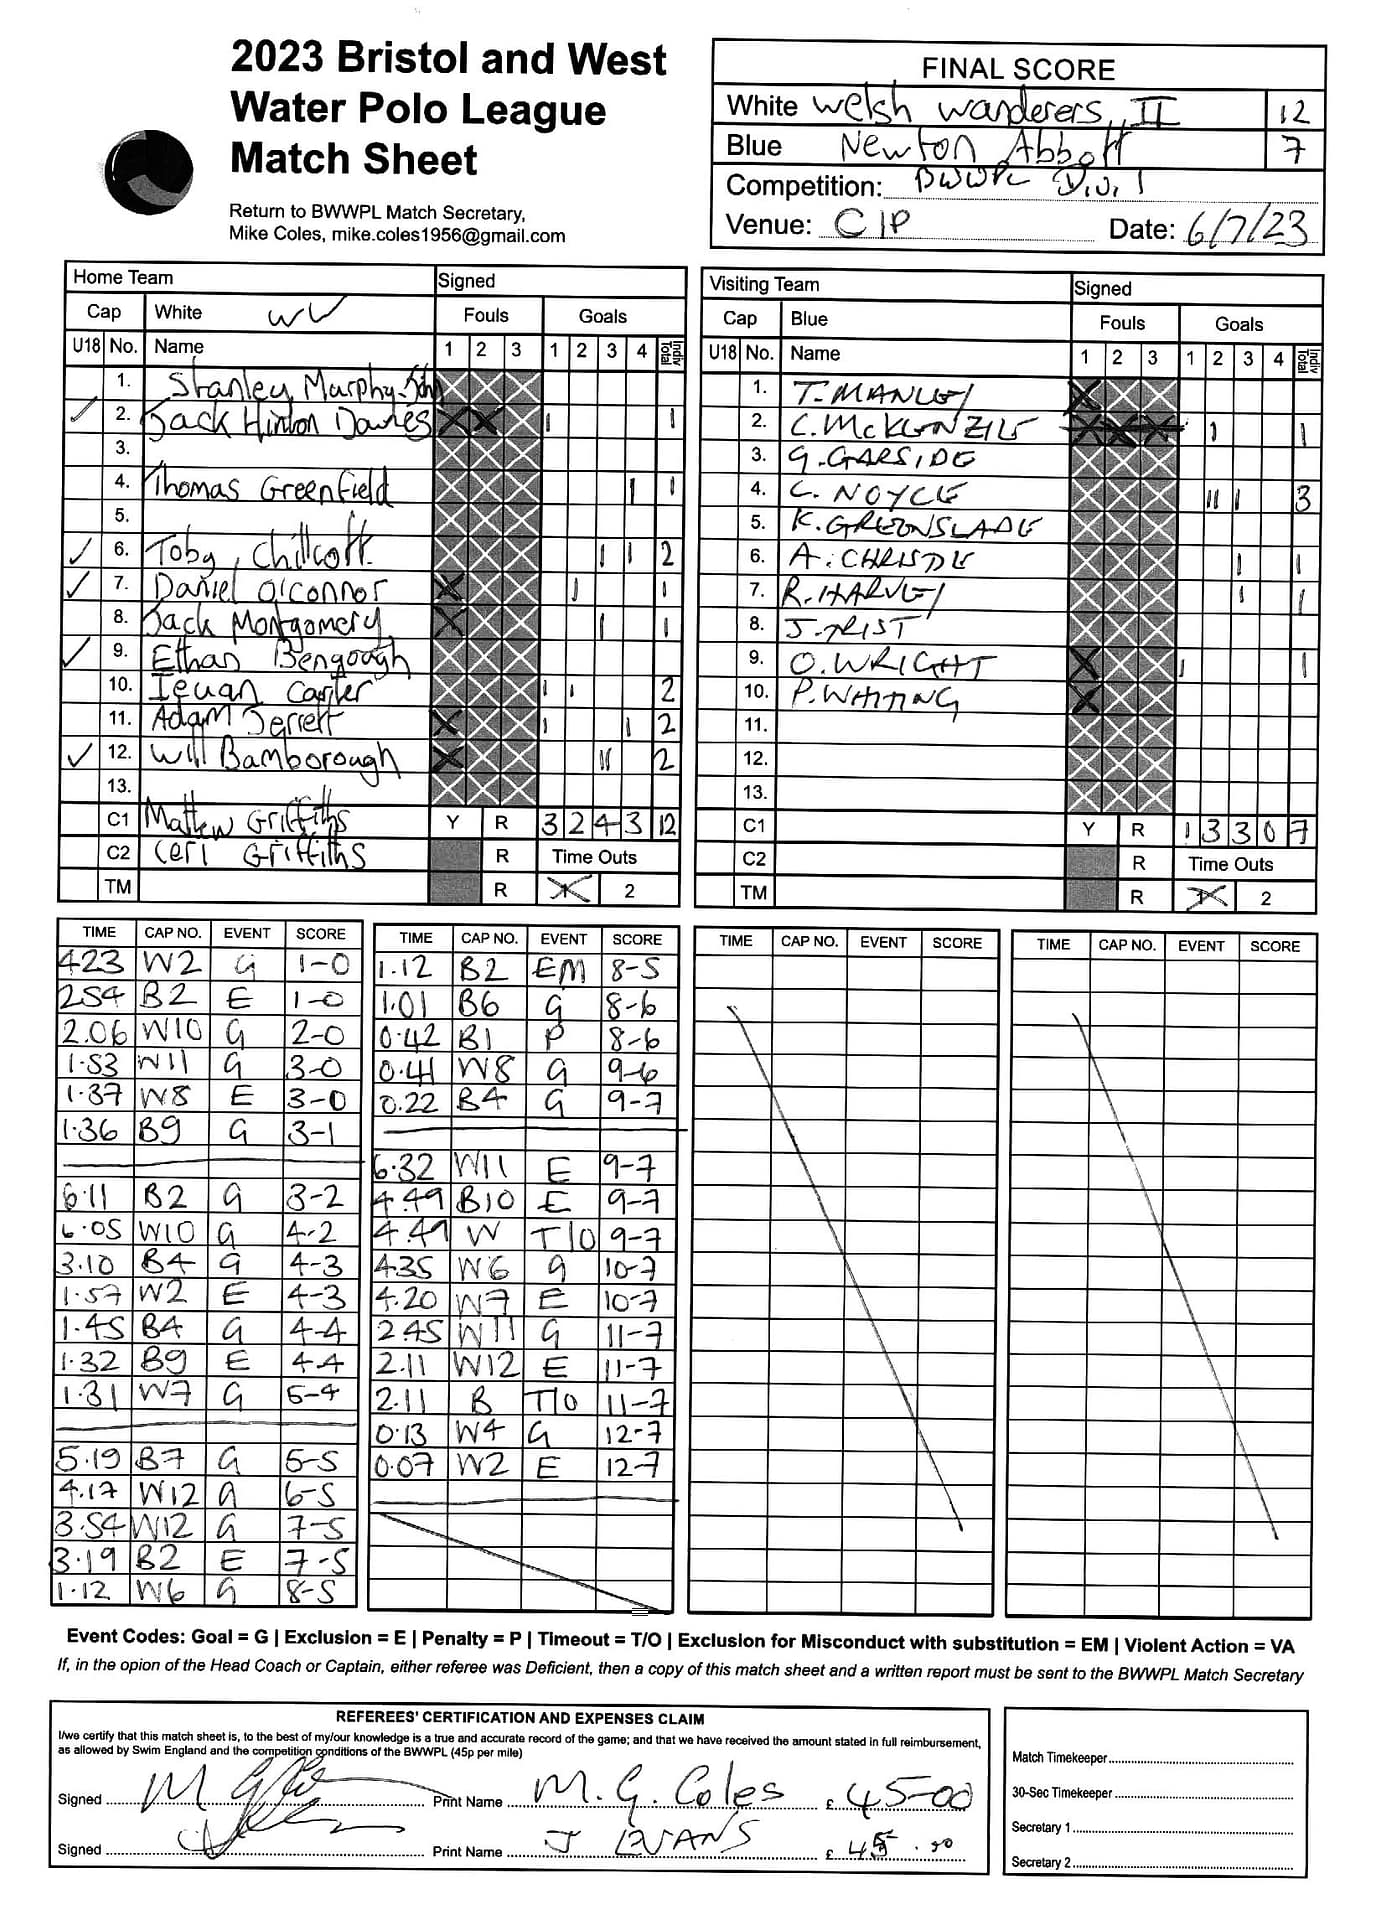 2023 Bristol and West
Water Polo League
Match Sheet
Return to BWWPL Match Secretary,
Mike Coles, mike.coles1956@gmail.com
FINAL SCORE
White Welsh Wanderers II 12
Blue Newton Abbott 7
Competition: BWWPL Div 1
Venue: CIP Date: 6/7/23
Home Team Signed
Cap White WW Fouls Goals
U18 No. Name 1 2 3 1 2 3 4 Indiv Total
1. Stanley Murphy
✓ 2. Jack Hinton Davies X X | 1
3.
4. Thomas Greenfield | 1
5.
✓ 6. Toby Chillcott | | 2
✓ 7. Daniel O'Connor X | 1
8. Jack Montgomery X | 1
✓ 9. Ethan Bengough
10. Ieuan Carter | | 2
11. Adam Jerrett X | | 2
✓ 12. Will Bamborough X || 2
13.
C1 Mattew Griffiths Y R 3 2 4 3 12
C2 Ceri Griffiths R Time Outs
TM R 1 2
Visiting Team Signed
Cap Blue Fouls Goals
U18 No. Name 1 2 3 1 2 3 4 Indiv Total
1. T. MANLEY X
2. C. McKENZIE X X X | 1
3. G. GARSIDE
4. C. NOYCE || | 3
5. K. GREENSLADE
6. A. CHRISTIE | 1
7. R. HARVEY | 1
8. J. TRIST
9. O. WRIGHT X | 1
10. P. WHITING X
11.
12.
13.
C1 Y R 1 3 3 0 7
C2 R Time Outs
TM R 1 2
TIME CAP NO. EVENT SCORE
4.23 W2 G 1-0
2.54 B2 E 1-0
2.06 W10 G 2-0
1.53 W11 G 3-0
1.37 W8 E 3-0
1.36 B9 G 3-1
6.11 B2 G 3-2
6.05 W10 G 4-2
3.10 B4 G 4-3
1.57 W2 E 4-3
1.45 B4 G 4-4
1.32 B9 E 4-4
1.31 W7 G 5-4
5.19 B7 G 5-5
4.17 W12 G 6-5
3.54 W12 G 7-5
3.19 B2 E 7-5
1.12 W6 G 8-5
TIME CAP NO. EVENT SCORE
1.12 B2 EM 8-5
1.01 B6 G 8-6
0.42 B1 P 8-6
0.41 W8 G 9-6
0.22 B4 G 9-7
6.32 W11 E 9-7
4.49 B10 E 9-7
4.49 W T/O 9-7
4.35 W6 G 10-7
4.20 W7 E 10-7
2.45 W11 G 11-7
2.11 W12 E 11-7
2.11 B T/O 11-7
0.13 W4 G 12-7
0.07 W2 E 12-7
TIME CAP NO. EVENT SCORE
TIME CAP NO. EVENT SCORE
Event Codes: Goal = G | Exclusion = E | Penalty = P | Timeout = T/O | Exclusion for Misconduct with substitution = EM | Violent Action = VA
If, in the opion of the Head Coach or Captain, either referee was Deficient, then a copy of this match sheet and a written report must be sent to the BWWPL Match Secretary
REFEREES' CERTIFICATION AND EXPENSES CLAIM
I/we certify that this match sheet is, to the best of my/our knowledge is a true and accurate record of the game; and that we have received the amount stated in full reimbursement,
as allowed by Swim England and the competition conditions of the BWWPL (45p per mile)
Signed Print Name M. G. Coles £ 45-00
Signed Print Name J EVANS £ 45.00
Match Timekeeper
30-Sec Timekeeper
Secretary 1
Secretary 2